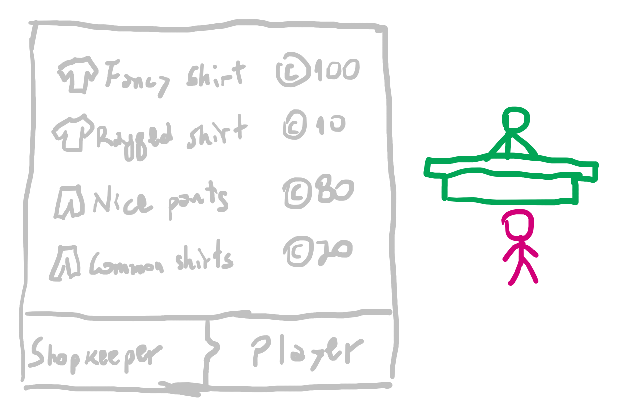 Fancy shirt © 100
Ragged shirt © 10
Nice pants © 80
Common shirts © 20
Shopkeeper > Player